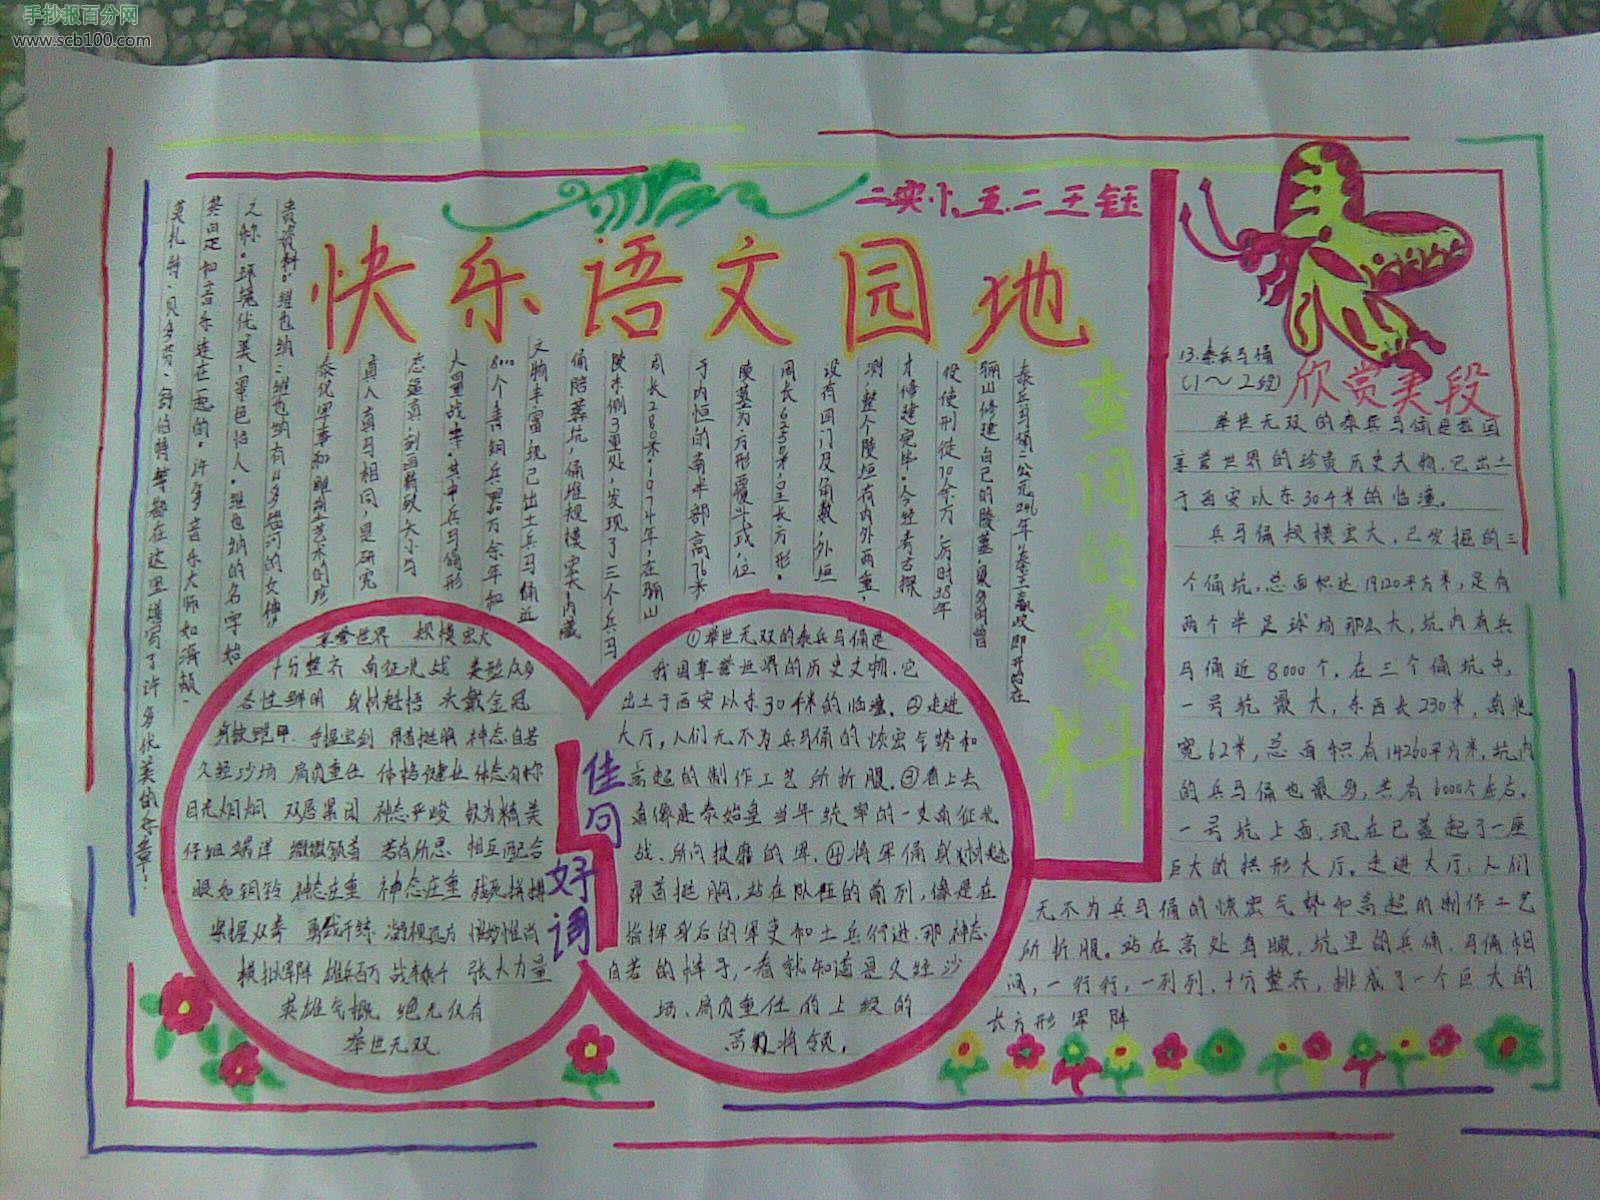 手抄报百分网
www.scb100.com
二实小.五.二王钰
快乐语文园地
查阅的资料
秦兵马俑:公元246年,秦王嬴政即开始在
骊山修建自己的陵墓,
役使刑徒70余万,历时38年
才修建完毕。今经考古探
测,整个陵垣有内外两重,
设有四门及角
周长6250米,呈长方形。
陵墓为方形覆斗式,位
于内垣的南半部高76米
周长280米,1974年,在骊山
陵东侧3里处,发现了三个兵马
俑陪葬坑,俑堆规模宏大,内藏
文物丰富,现已出土兵马俑近
8000个,青铜兵器万余年和
态逼真,刻画精致大小与
真人真马相同,是研究
秦代军事和雕刻艺术的珍
贵资料。维也纳:维也纳有“多瑙河的女神”
之称。环境优美,景色怡人。维也纳的名字始
终是和音乐连在一起的。许多音乐大师如海顿、
莫扎特、贝多芬、舒伯特等都在这里谱写了许多优美的乐章!
享誉世界 规模宏大
十分整齐 南征北战 类型众多
个性鲜明 身材魁梧 头戴金冠
身披铠甲 手握宝剑 昂首挺胸 神态自若
久经沙场 肩负重任 体格健壮 体态匀称
目光炯炯 双唇紧闭 神态严峻 敦为精美
仔细端详 微微颔首 若有所思 相互配合
眼如铜铃 神态庄重 神态庄重 殊死拼搏
紧握双拳 勇敢干练 凝视远方 惟妙惟肖
模拟军阵 雄兵百万 战车千 张大力量
英雄气概 绝无仅有
举世无双
佳句
好词
①举世无双的秦兵马俑是
我国享誉世界的历史文物,它
出土于西安以东30千米的临潼。②走进
大厅,人们无不为兵马俑的恢宏气势和
高超的制作工艺所折服。③看上去
真像是秦始皇当年统率的一支南征北
战、所向披靡的军。④将军俑身材魁梧
昂首挺胸,站在队伍的前列,像是在
指挥身后的军吏和士兵行进,那神态
自若的样子,一看就知道是久经沙
场、肩负重任的上级的
高级将领。
欣赏美段
13.秦兵马俑
(1～2段)
举世无双的秦兵马俑是我国
享誉世界的珍贵历史文物,它出土
于西安以东30千米的临潼。
兵马俑规模宏大,已发掘的三
个俑坑,总面积达19120平方米,足有
两个半足球场那么大,坑内有兵
马俑近8000个,在三个俑坑中,
一号坑最大,东西长230米,南北
宽62米,总面积有14260平方米,坑内
的兵马俑也最多,共有6000个左右。
一号坑上面,现在已盖起了一座
巨大的拱形大厅。走进大厅,人们
无不为兵马俑的恢宏气势和高超的制作工艺
所折服。站在高处鸟瞰,坑里的兵俑、马俑相
间,一行行,一列列,十分整齐,排成了一个巨大的
长方形军阵